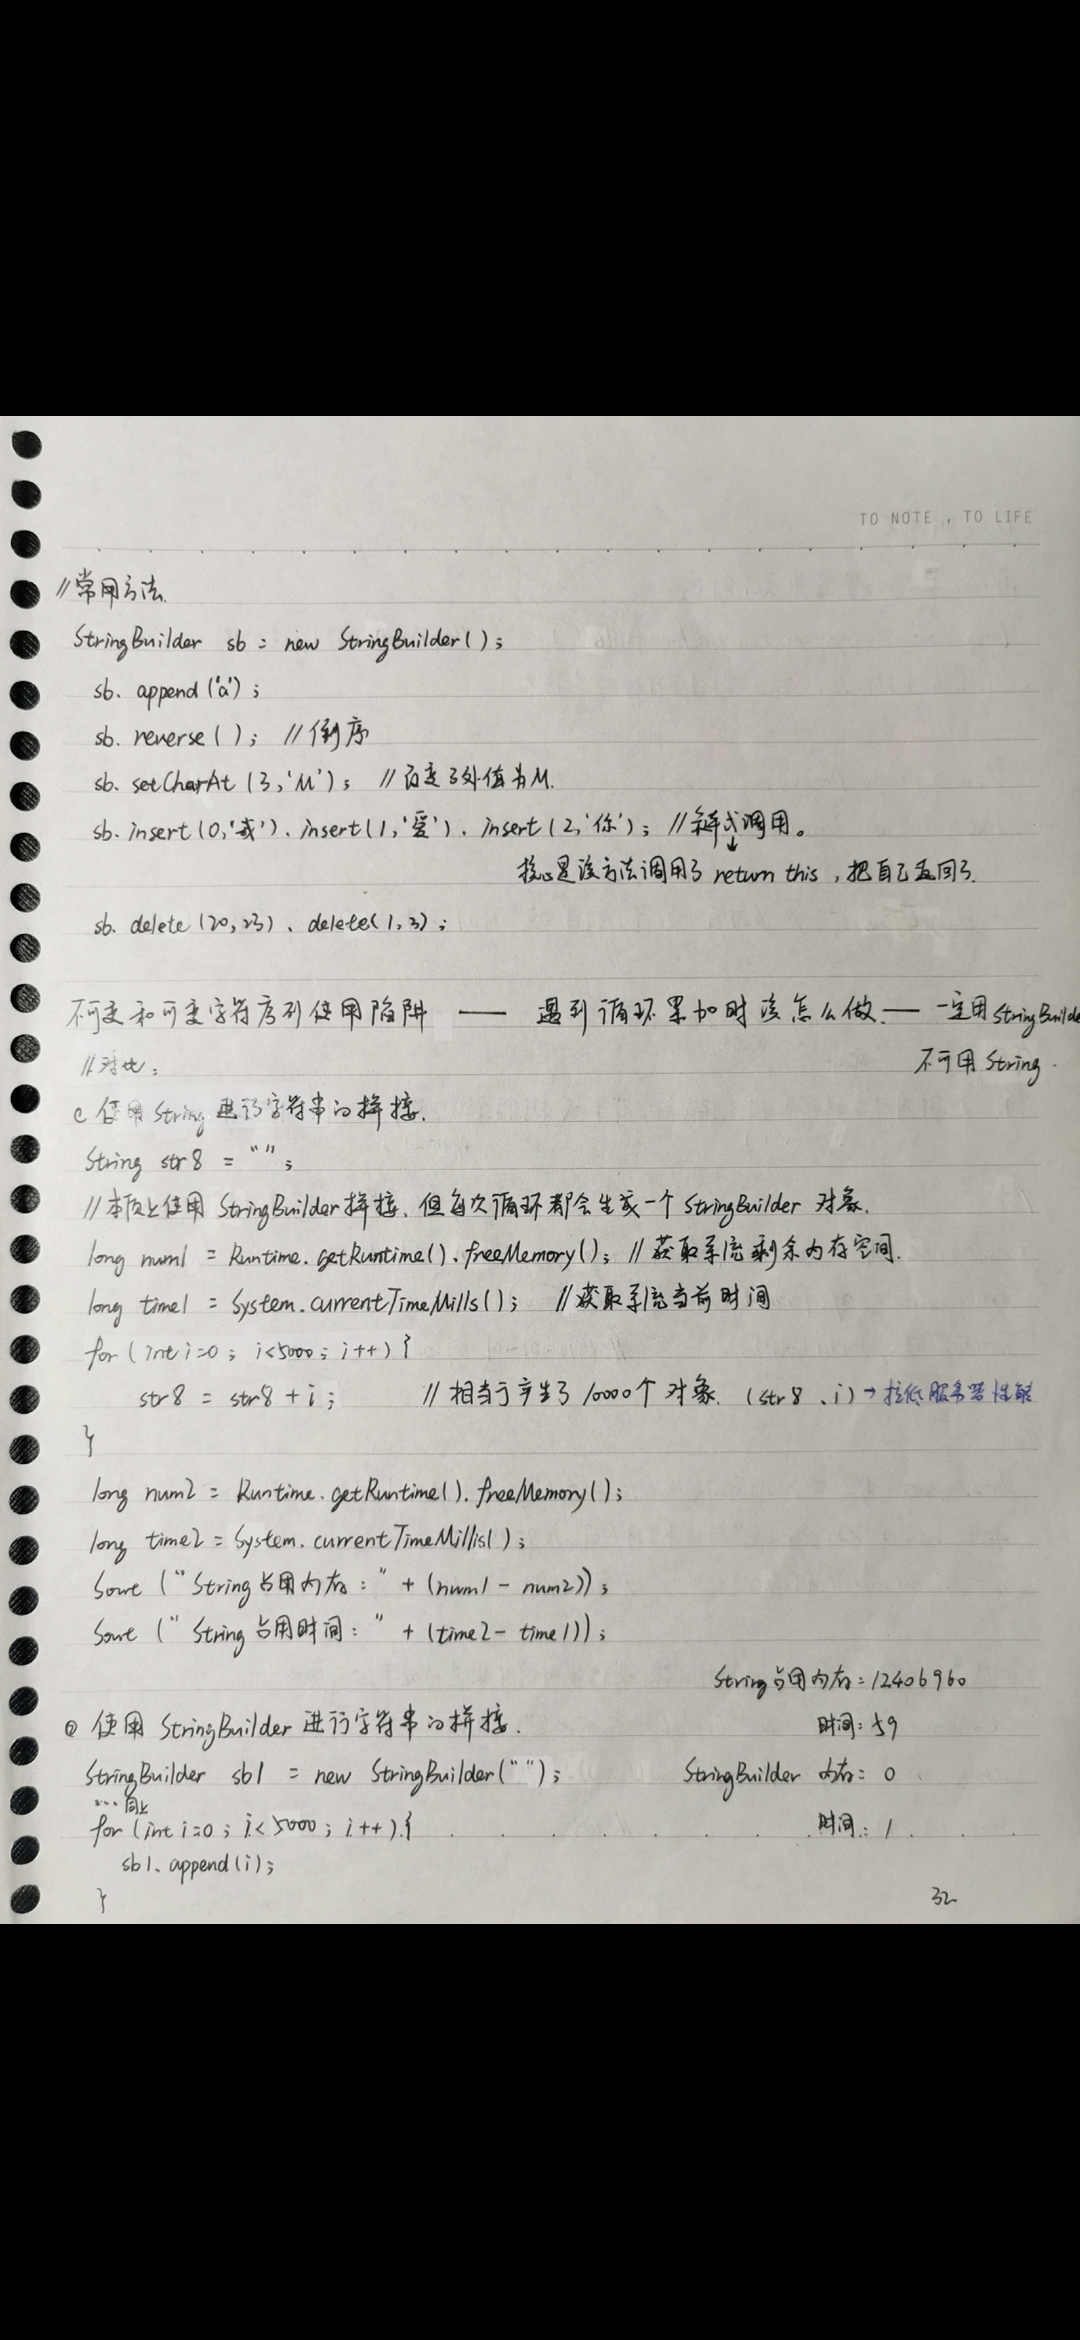 TO NOTE , TO LIFE
//常用方法.
StringBuilder sb = new StringBuilder();
sb. append('a');
sb. reverse(); //倒序
sb. setCharAt(3,'M'); //改变3处值为M.
sb. insert(0,'我'). insert(1,'爱'). insert(2,'你'); //链式调用。
↓
核心是该方法调用了 return this,把自己返回了.
sb. delete(20,23). delete(1,3);
不可变和可变字符序列使用陷阱 —— 遇到循环累加时该怎么做.—— 一定用StringBuilde
不可用 String.
//对比:
使用 String 进行字符串的拼接.
String str8 = "";
//本质上使用 StringBuilder拼接.但每次循环都会生成一个 StringBuilder 对象.
long num1 = Runtime.getRuntime().freeMemory(); //获取系统剩余内存空间.
long time1 = System.currentTimeMills(); //获取系统当前时间
for (int i=0; i<5000; i++) {
str8 = str8 + i; //相当于产生了 10000个对象. (str8 、i) → 拉低服务器性能
}
long num2 = Runtime.getRuntime().freeMemory();
long time2 = System.currentTimeMillis();
Sout ("String占用内存:" + (num1 - num2));
Sout (" String 占用时间:" + (time2 - time1));
String占用内存: 12406960
② 使用 StringBuilder 进行字符串的拼接.
时间: 59
StringBuilder sb1 = new StringBuilder("");
StringBuilder 内存: 0
.... 同上
for (int i=0; i<5000; i++) {
时间: 1
sb1. append(i);
}
32